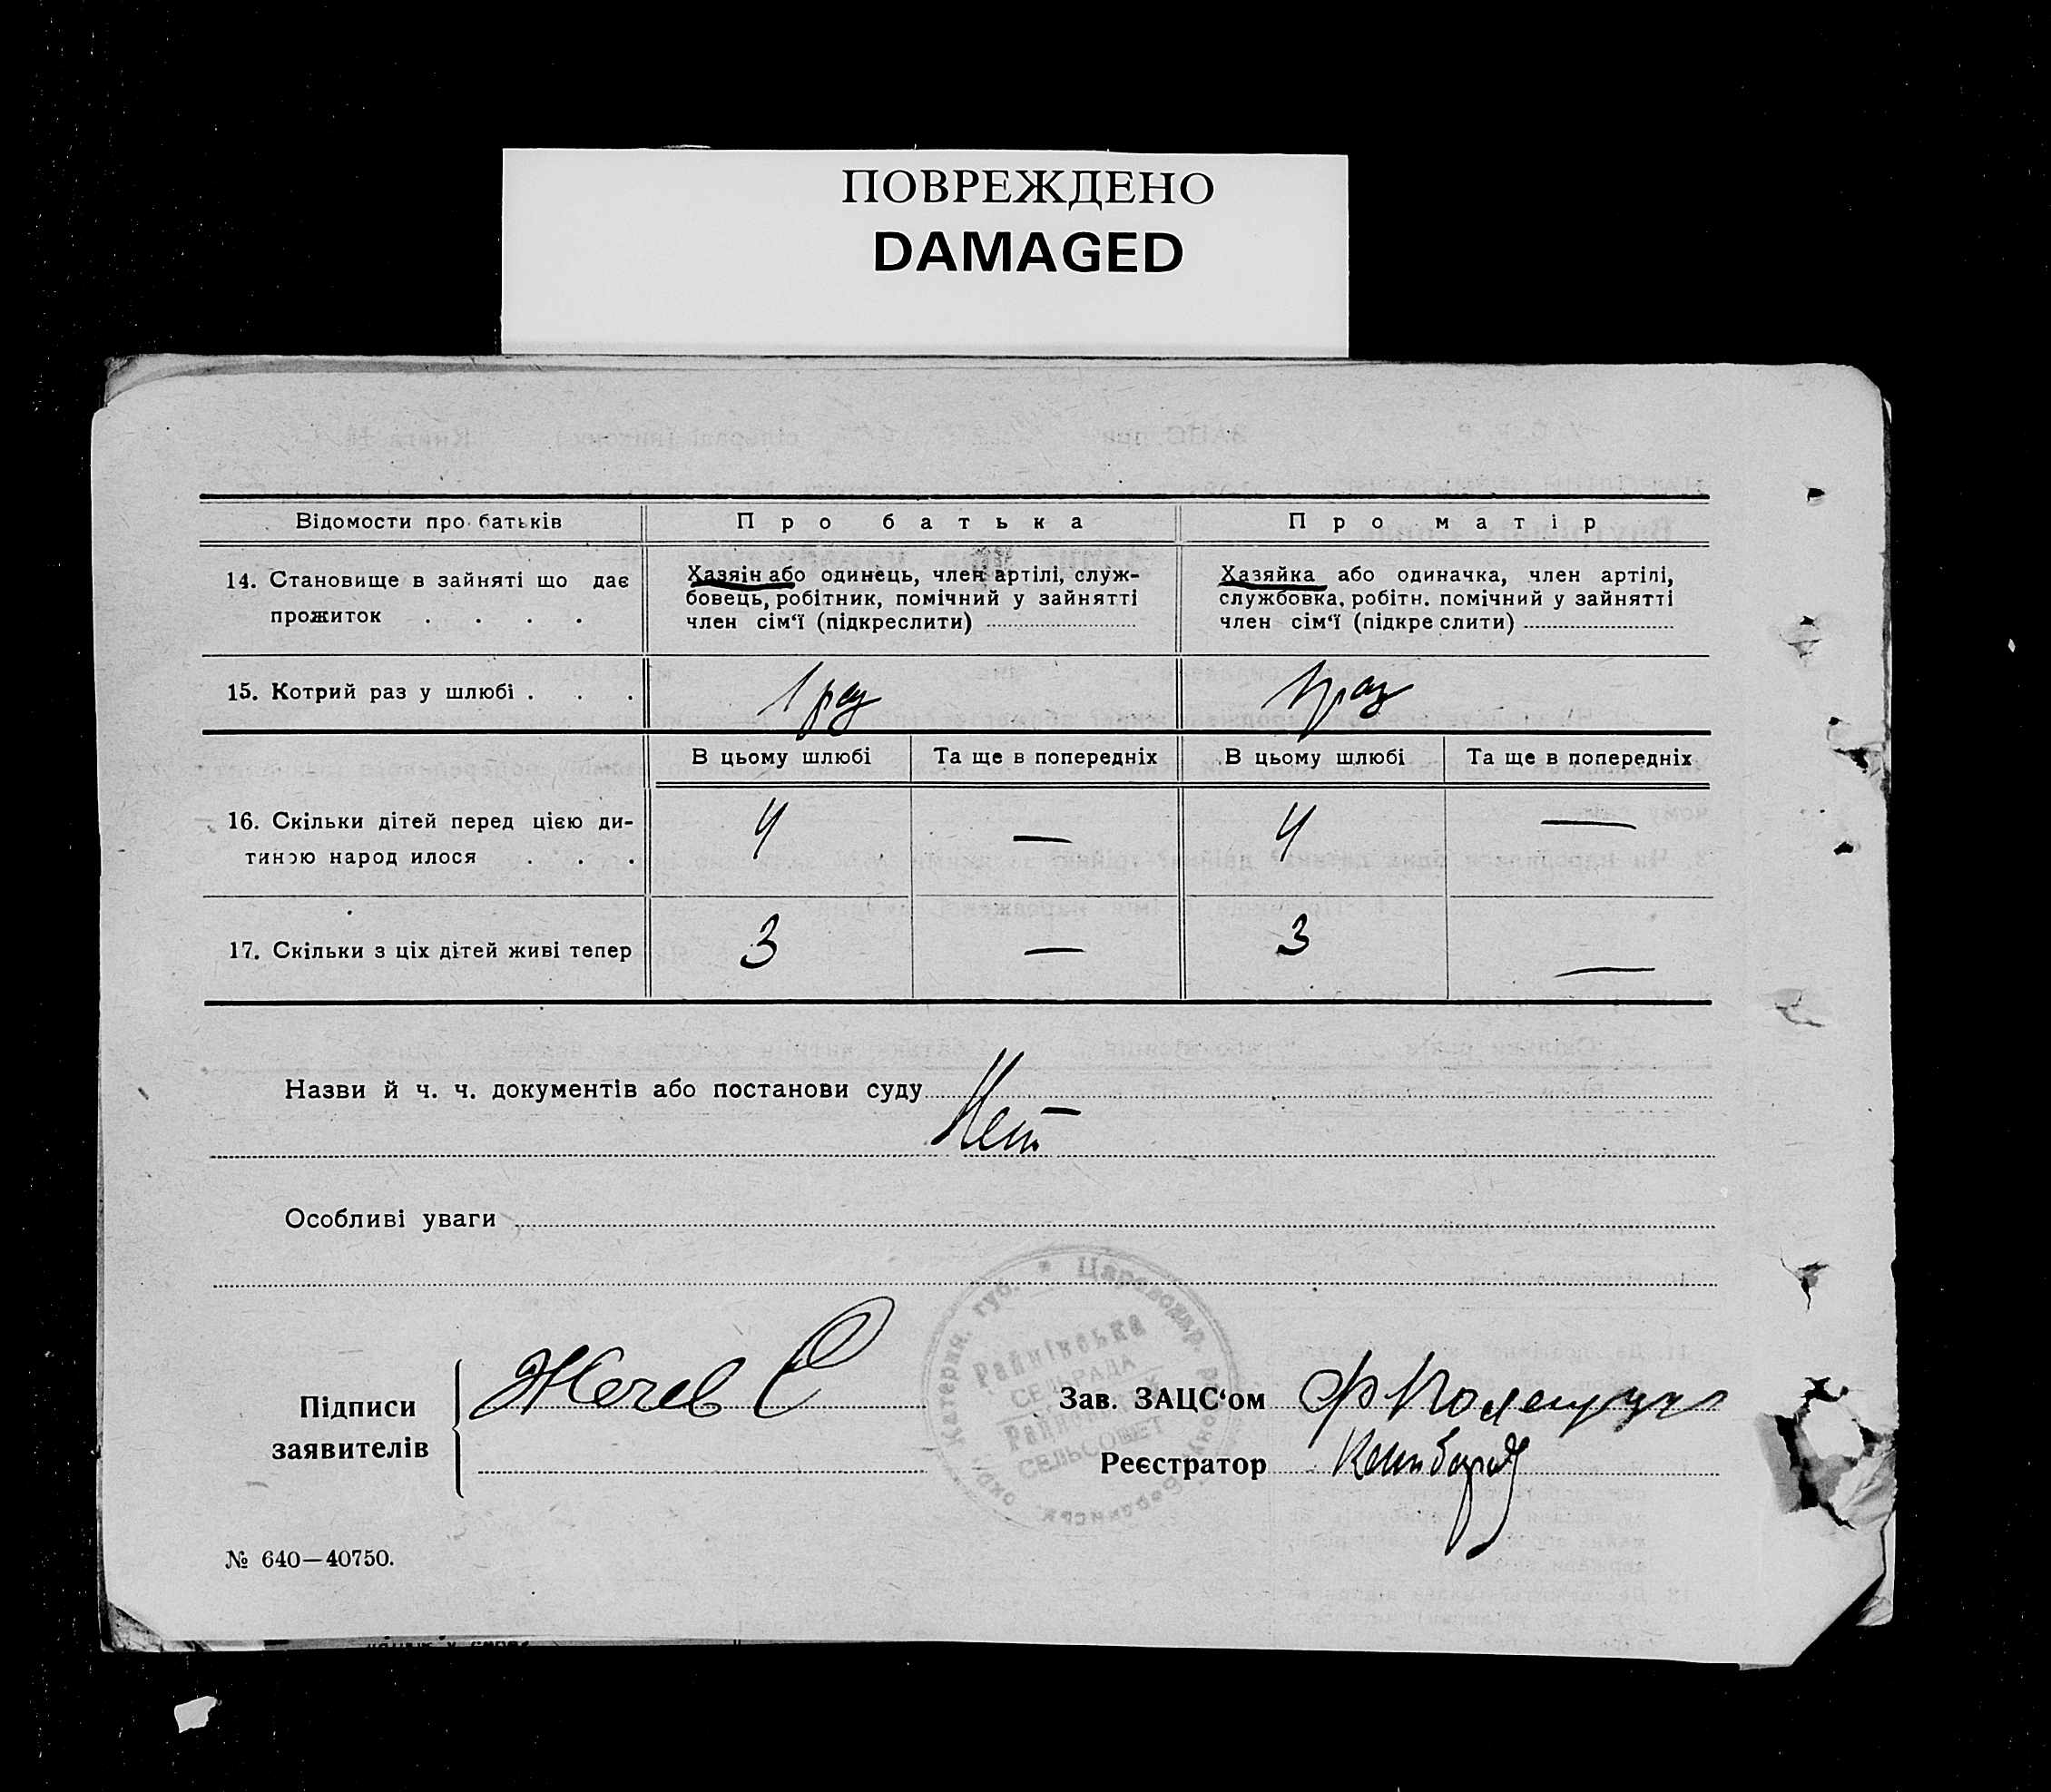 ПОВРЕЖДЕНО
DAMAGED
Відомости про батьків
Про батька
Про матір
14. Становище в зайняті що дає
прожиток . . . .
Хазяін або одинець, член артілі, служ-
бовець, робітник, помічний у зайнятті
член сім‘ї (підкреслити)
Хазяйка або одиначка, член артілі,
службовка, робітн. помічний у зайнятті
член сім‘ї (підкре слити)
15. Котрий раз у шлюбі . . .
1 раз
1 раз
В цьому шлюбі
Та ще в попередніх
В цьому шлюбі
Та ще в попередніх
16. Скільки дітей перед цією ди-
тиною народ илося . . .
4
—
4
—
17. Скільки з ціх дітей живі тепер
3
—
3
—
Назви й ч. ч. документів або постанови суду
Нет
Особливі уваги
Катерин. губ. * Царевокдар.
СЕЛЬРАДА
СЕЛЬСОВЕТ
Підписи
заявителів
Зав. ЗАЦС‘ом
Реєстратор
№ 640—40750.